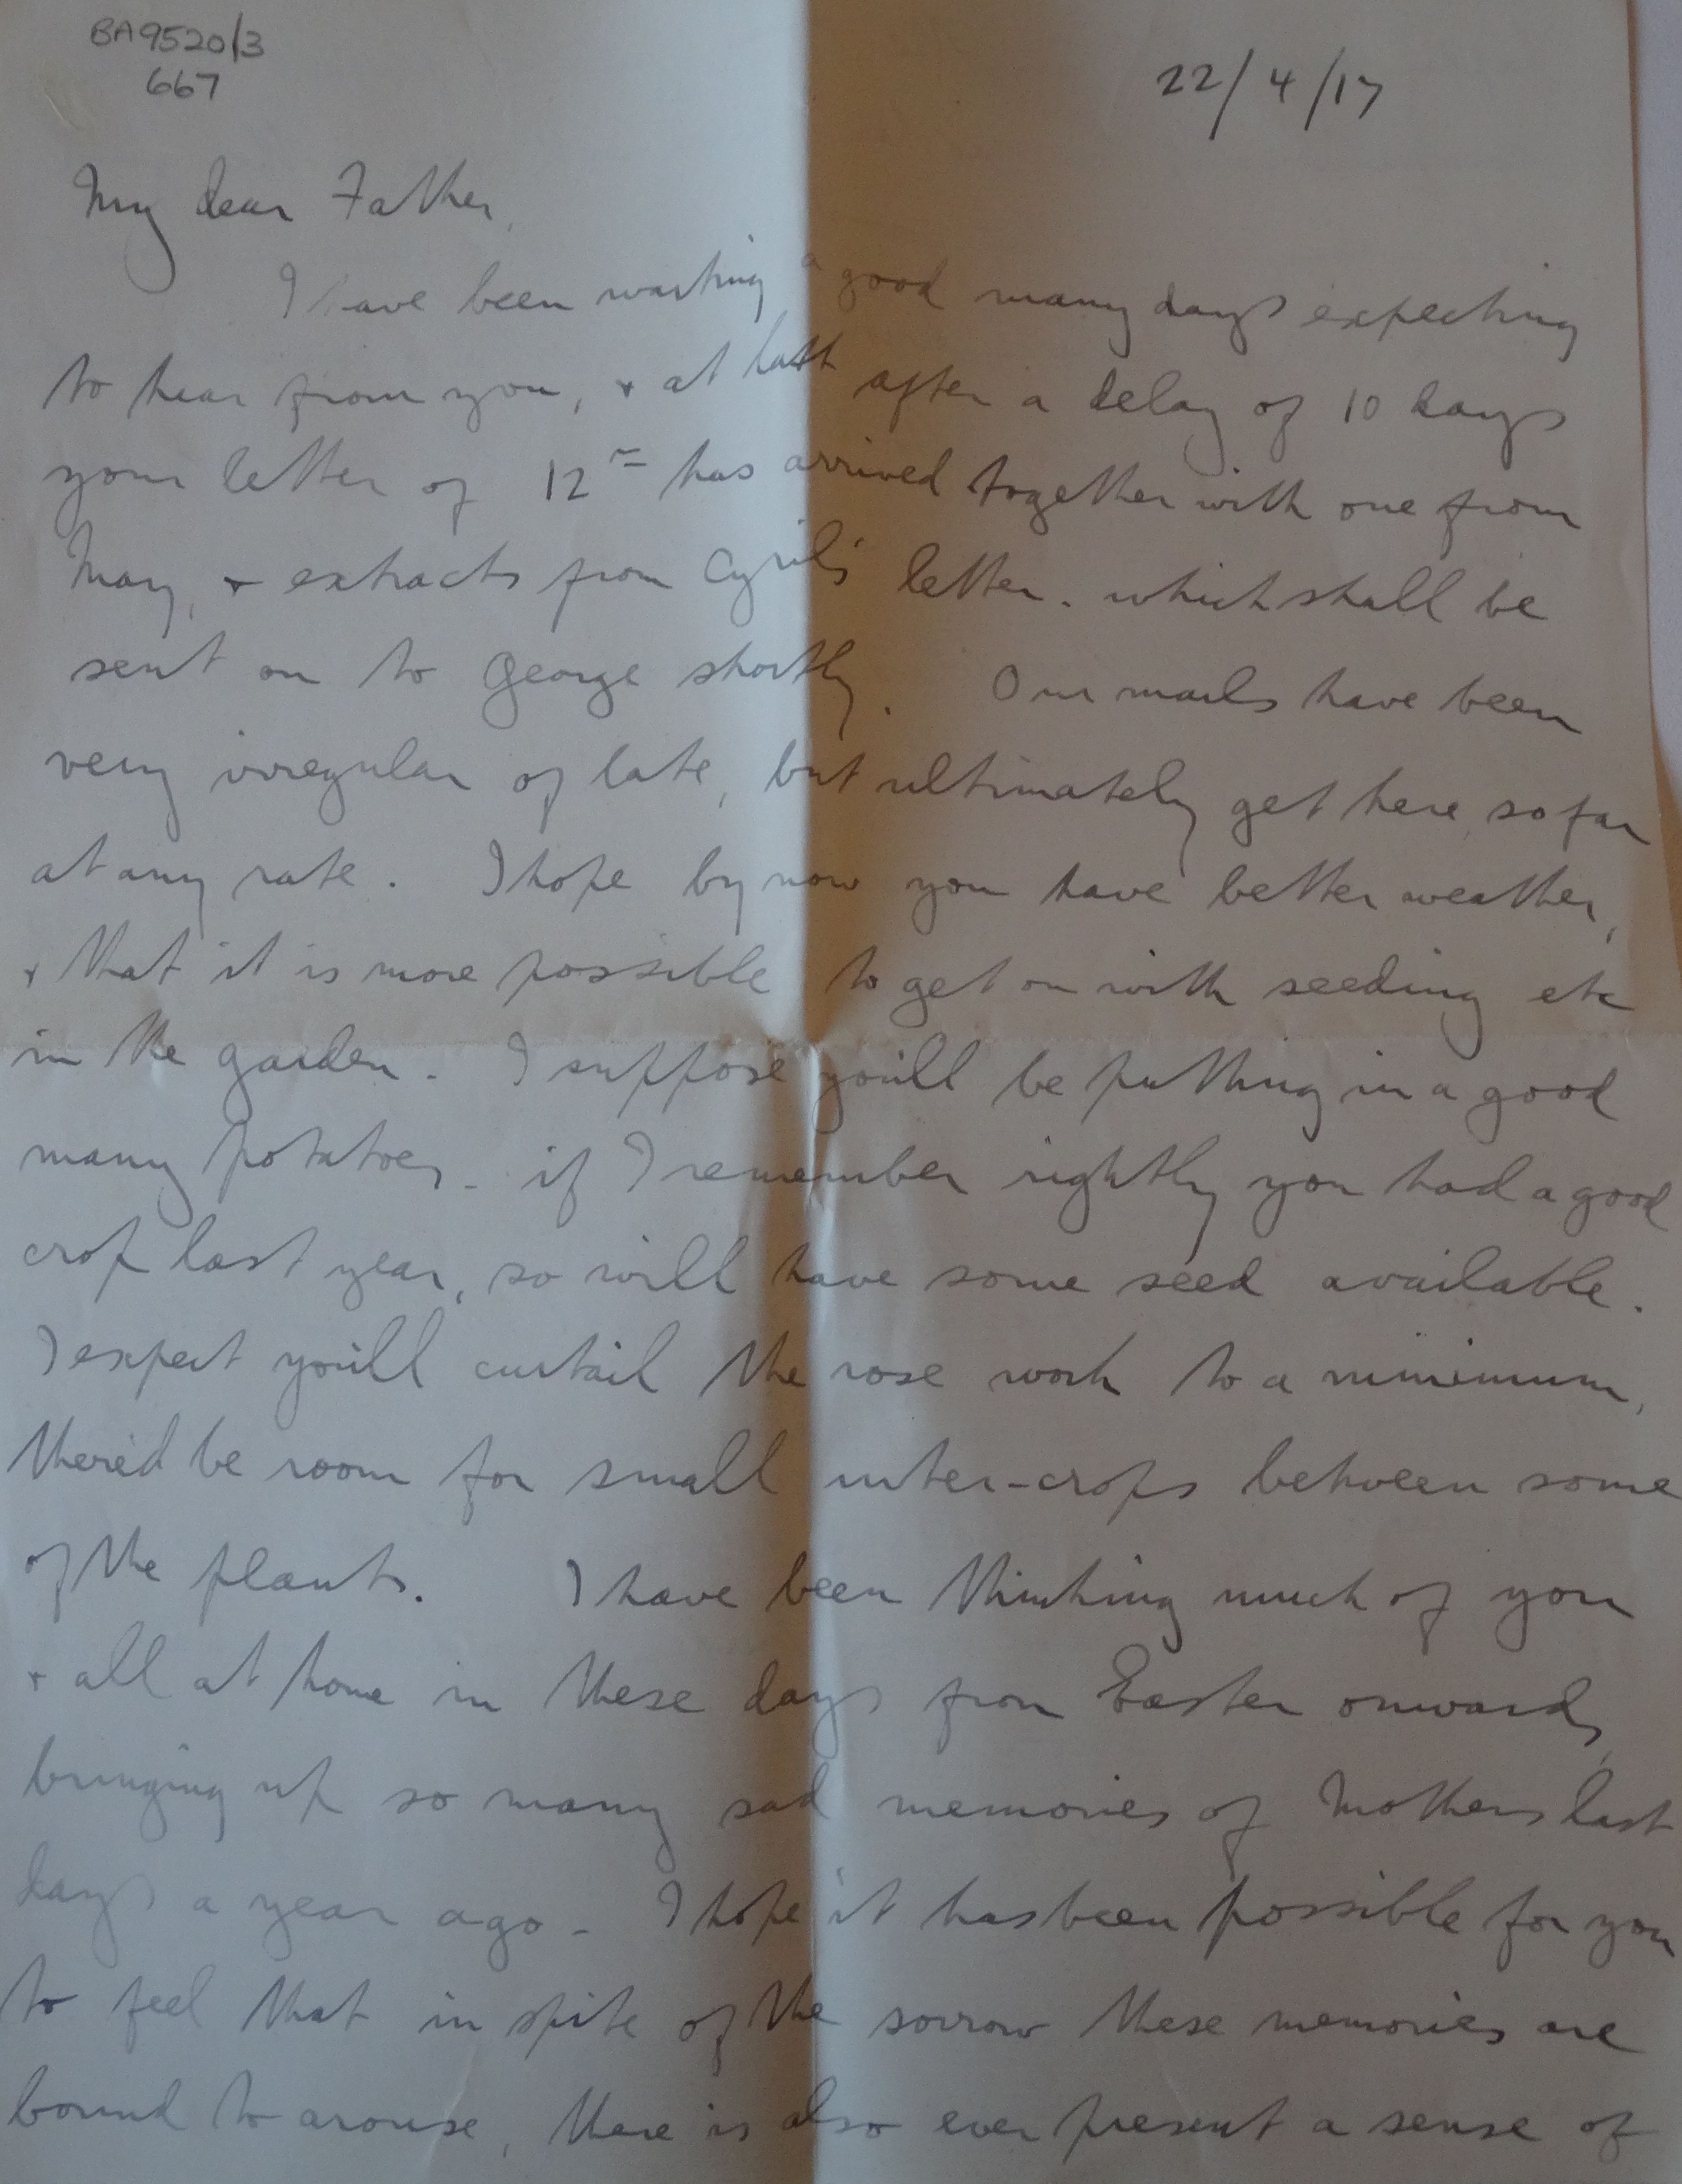 BA9520/3
667
22/4/17
My dear Father,
I have been waiting a good many days expecting
to hear from you, + at last after a delay of 10 days
your letter of 12th has arrived together with one from
May, + extracts from Cyril's letter. which shall be
sent on to George shortly. Our mails have been
very irregular of late, but ultimately get here, so far
at any rate. I hope by now you have better weather,
+ that it is more possible to get on with seeding etc
in the garden. I suppose you'll be putting in a good
many potatoes - if I remember rightly you had a good
crop last year, so will have some seed available.
I expect you'll curtail the rose work to a minimum,
there'd be room for small inter-crops between some
of the plants. I have been thinking much of you
+ all at home in these days from Easter onwards,
bringing up so many sad memories of Mothers last
days a year ago - I hope it has been possible for you
to feel that in spite of the sorrow these memories are
bound to arouse, there is also ever present a sense of